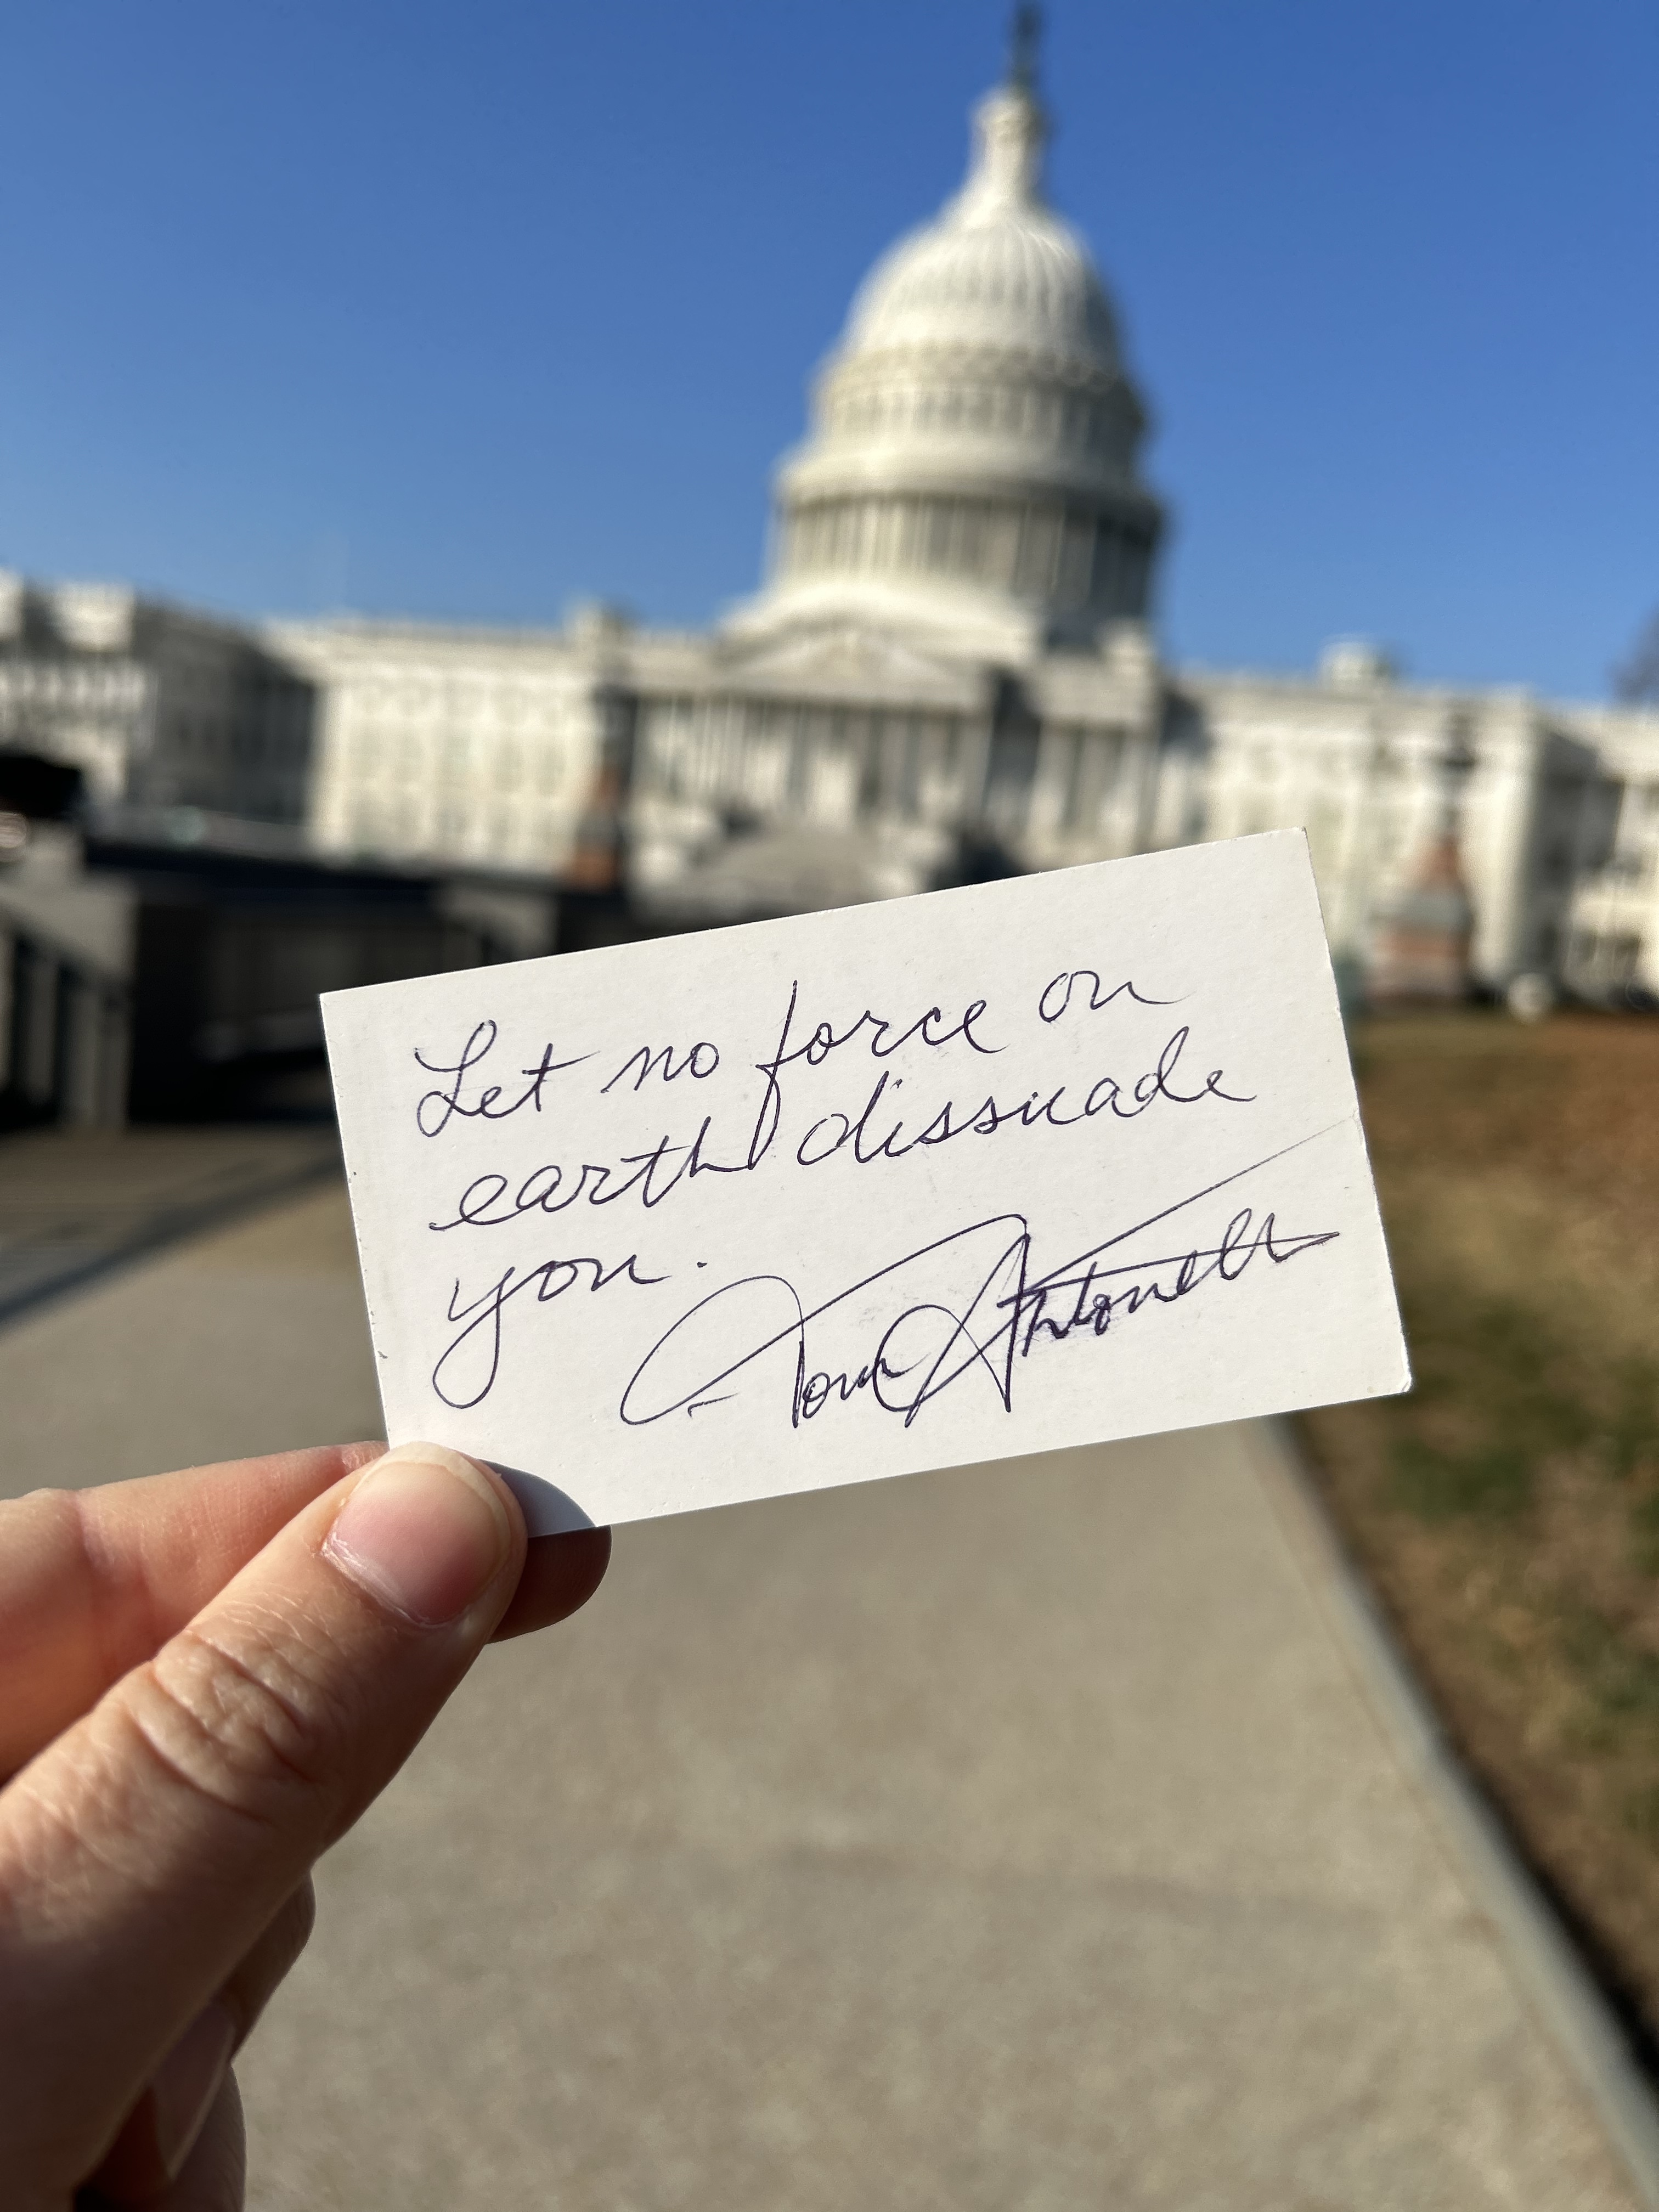 Let no force on
earth dissuade
you.
- Tom Antonelli